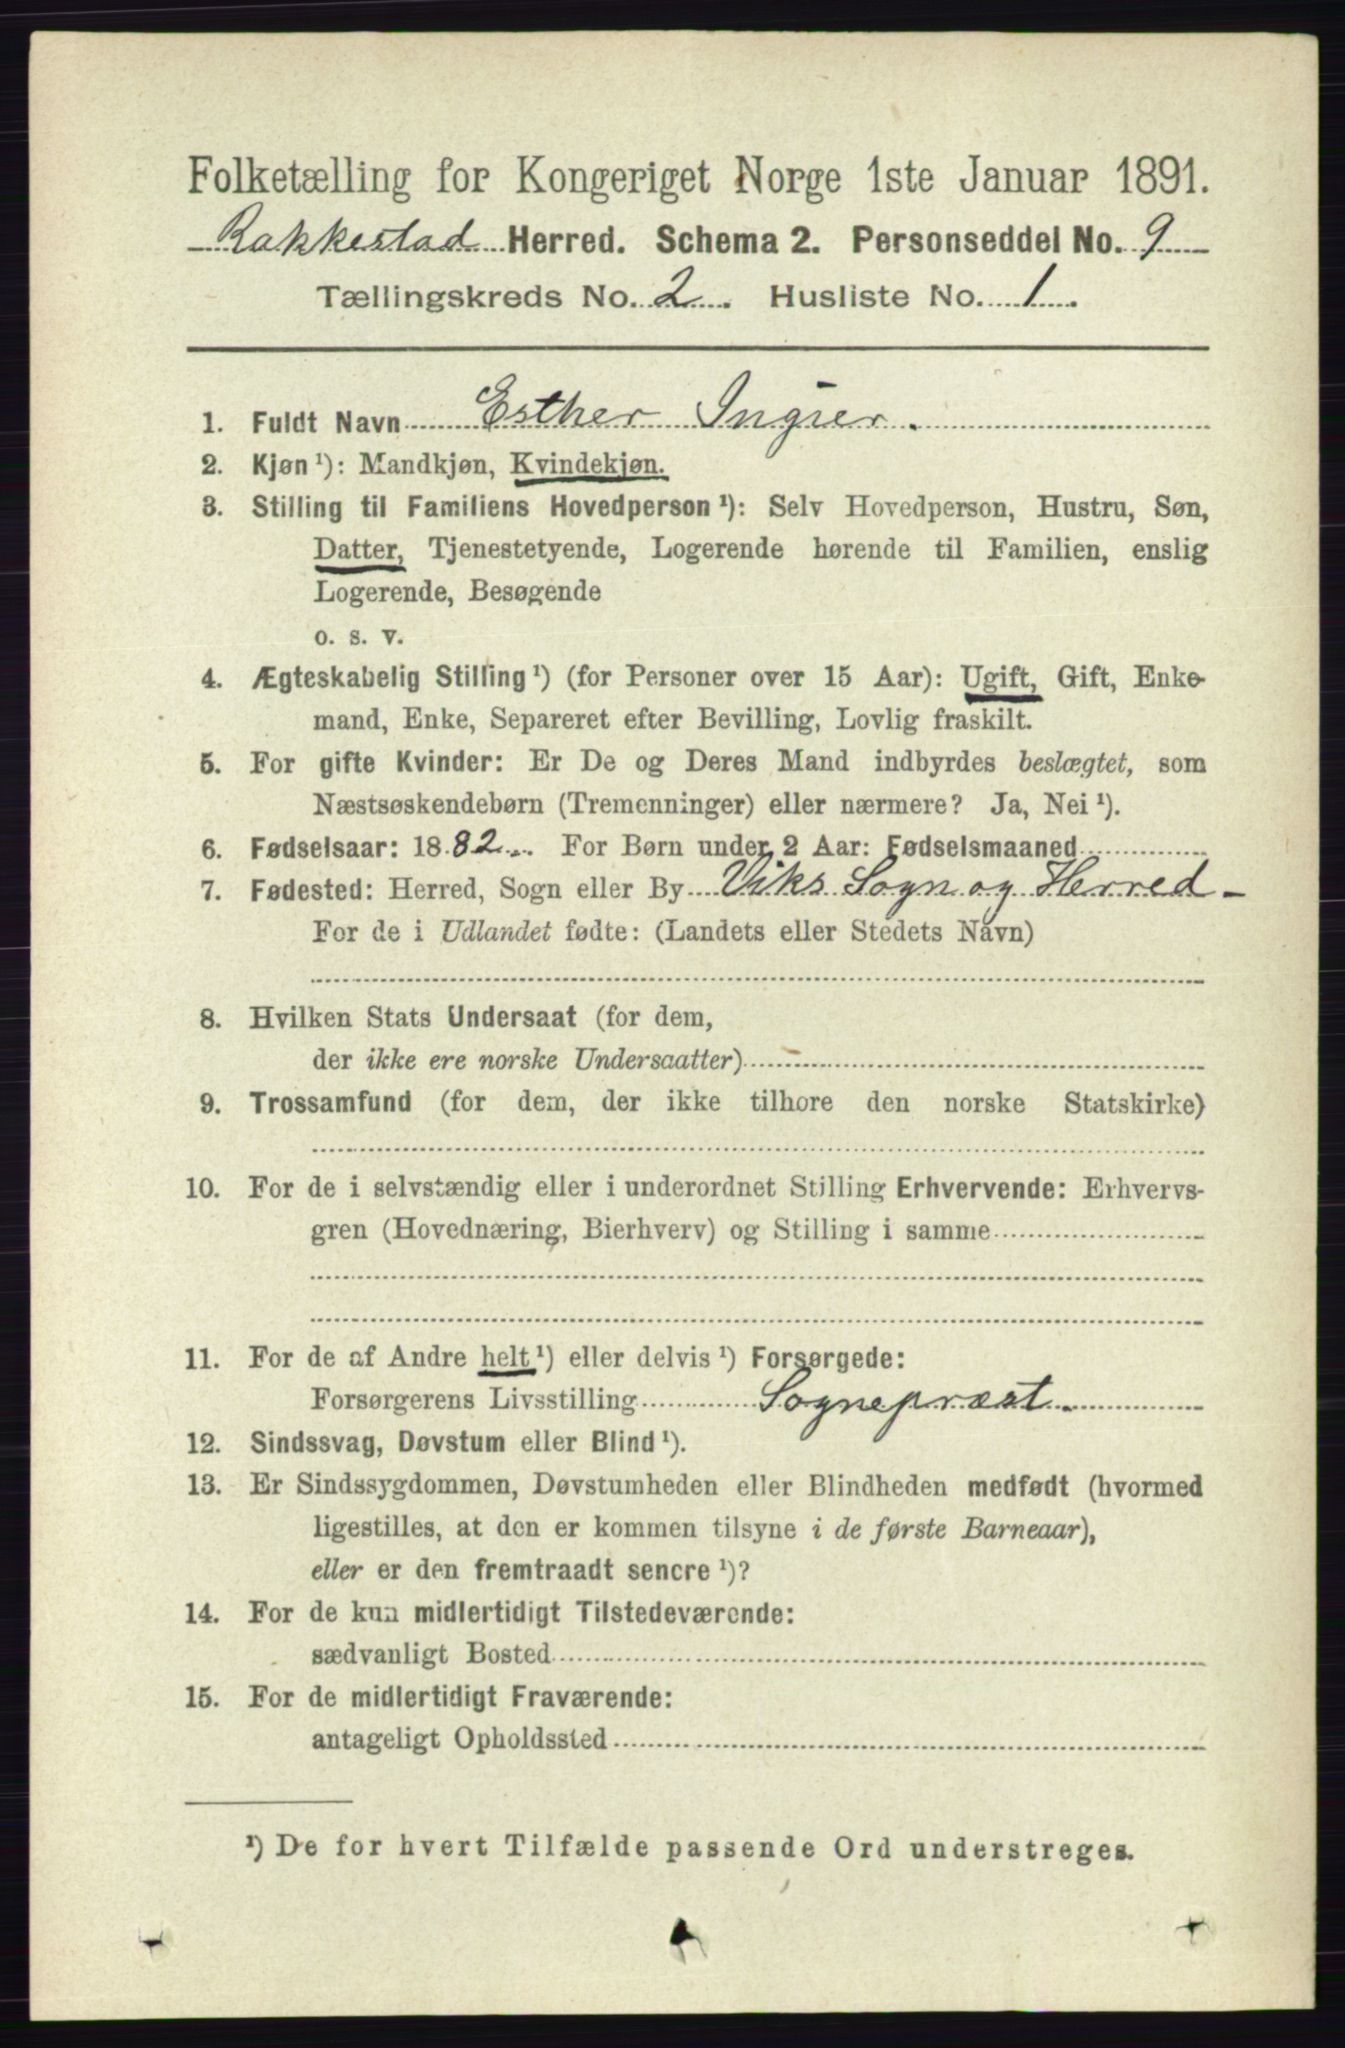 Folketælling for Kongeriget Norge 1ste Januar 1891.
Rakkestad Herred. Schema 2. Personseddel No. 9
Tællingskreds No. 2. Husliste No. 1.
1. Fuldt Navn Esther Ingier.
2. Kjøn ¹): Mandkjøn, Kvindekjøn.
3. Stilling til Familiens Hovedperson ¹): Selv Hovedperson, Hustru, Søn,
Datter, Tjenestetyende, Logerende hørende til Familien, enslig
Logerende, Besøgende
o. s. v.
4. Ægteskabelig Stilling ¹) (for Personer over 15 Aar): Ugift, Gift, Enke-
mand, Enke, Separeret efter Bevilling, Lovlig fraskilt.
5. For gifte Kvinder: Er De og Deres Mand indbyrdes beslægtet, som
Næstsøskendebørn (Tremenninger) eller nærmere? Ja, Nei ¹).
6. Fødselsaar: 1882. For Børn under 2 Aar: Fødselsmaaned
7. Fødested: Herred, Sogn eller By Viks Sogn og Herred -
For de i Udlandet fødte: (Landets eller Stedets Navn)
8. Hvilken Stats Undersaat (for dem,
der ikke ere norske Undersaatter)
9. Trossamfund (for dem, der ikke tilhøre den norske Statskirke)
10. For de i selvstændig eller i underordnet Stilling Erhvervende: Erhvervs-
gren (Hovednæring, Bierhverv) og Stilling i samme
11. For de af Andre helt ¹) eller delvis ¹) Forsørgede:
Forsørgerens Livsstilling Sognepræst.
12. Sindssvag, Døvstum eller Blind ¹).
13. Er Sindssygdommen, Døvstumheden eller Blindheden medfødt (hvormed
ligestilles, at den er kommen tilsyne i de første Barneaar),
eller er den fremtraadt senere ¹)?
14. For de kun midlertidigt Tilstedeværende:
sædvanligt Bosted
15. For de midlertidigt Fraværende:
antageligt Opholdssted
¹) De for hvert Tilfælde passende Ord understreges.